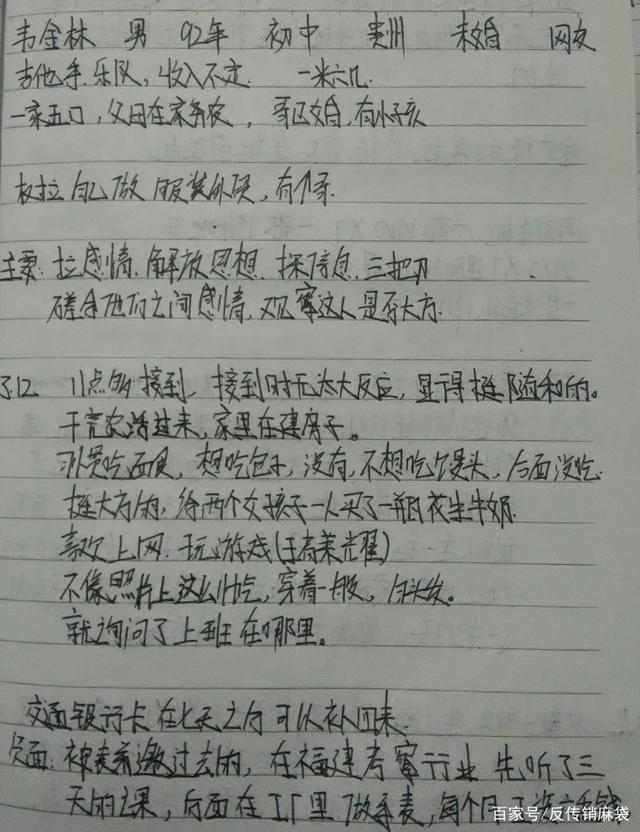 韦金林 男 92年 初中 贵州 未婚 网友
吉他手.乐队,收入不定. 一米六几.
一家五口,父母在家务农,哥已婚,有小孩
权拉 自己做服装外贸,有个哥.
主要:拉感情.解放思想.探信息.三把刀
磋合他们之间感情,观察这人是否大方.
11点多接到,接到时无太大反应,显得挺随和的。
干完农活过来,家里在建房子。
习惯吃面食,想吃包子,没有,不想吃馒头,后面没吃.
挺大方的,给两个女孩子一人买了一瓶花生牛奶.
喜欢上网.玩游戏(王者荣耀)
不像照片上这么帅,穿着一般,白头发。
就询问了上班在哪里。
交通银行卡在七天之内可以补回来
负面:被表弟邀过去的,在福建考察行业 先听了三
天的课,后面在工厂里做手表,每个月
百家号/反传销麻袋